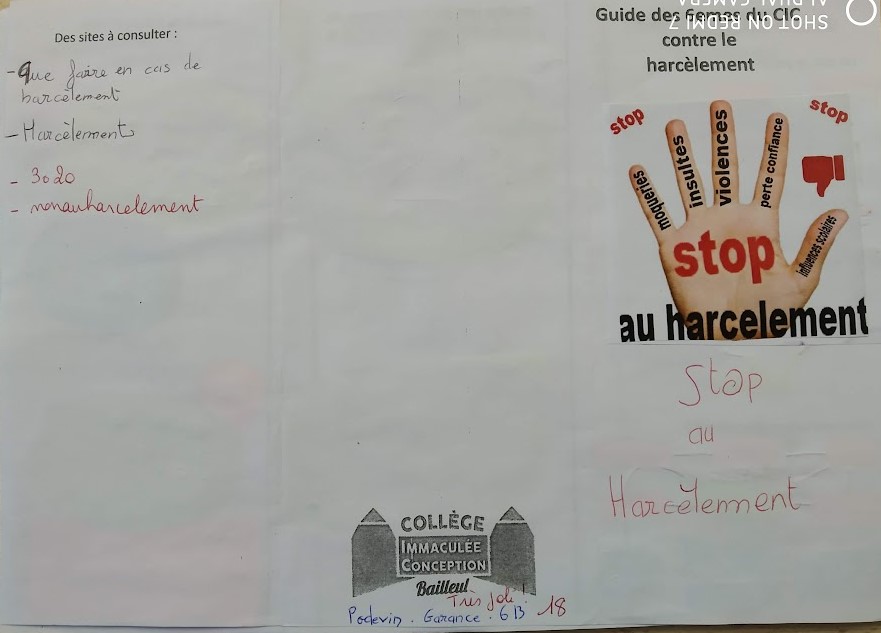 Des sites à consulter :
- Que faire en cas de
harcèlement
- Harcèlement
- 3020
- nonauharcelement
COLLÈGE
IMMACULÉE
CONCEPTION
Bailleul
Très joli !
Podevin . Garance . 6B 18
SHOT ON REDMI 7
AI DUAL CAMERA
Guide des 6emes du CIC
contre le
harcèlement
stop
stop
moqueries
insultes
violences
perte confiance
influences scolaires
stop
au harcelement
Stop
au
Harcèlement